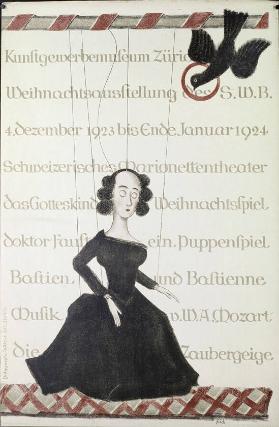 Kunstgewerbemuseum Züric
Weihnachtsausstellung des S.W.B.
4. dezember 1923 bis Ende Januar 1924
Schweizerisches Marionettentheater
das Gotteskind Weihnachtsspiel
doktor Faus ein Puppenspiel
Bastien und Bastienne
Musik v. W.A. Mozart
die Zaubergeige